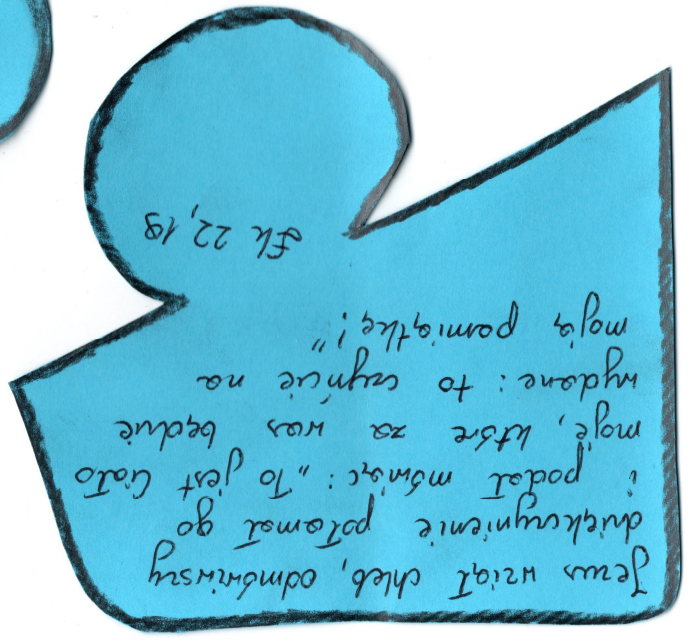 Jezus wziął chleb, odmówiwszy
dziękczynienie połamał go
i podał mówiąc: „To jest Ciało
moje, które za was będzie
wydane: to czyńcie na
moją pamiątkę!”
Łk 22,19